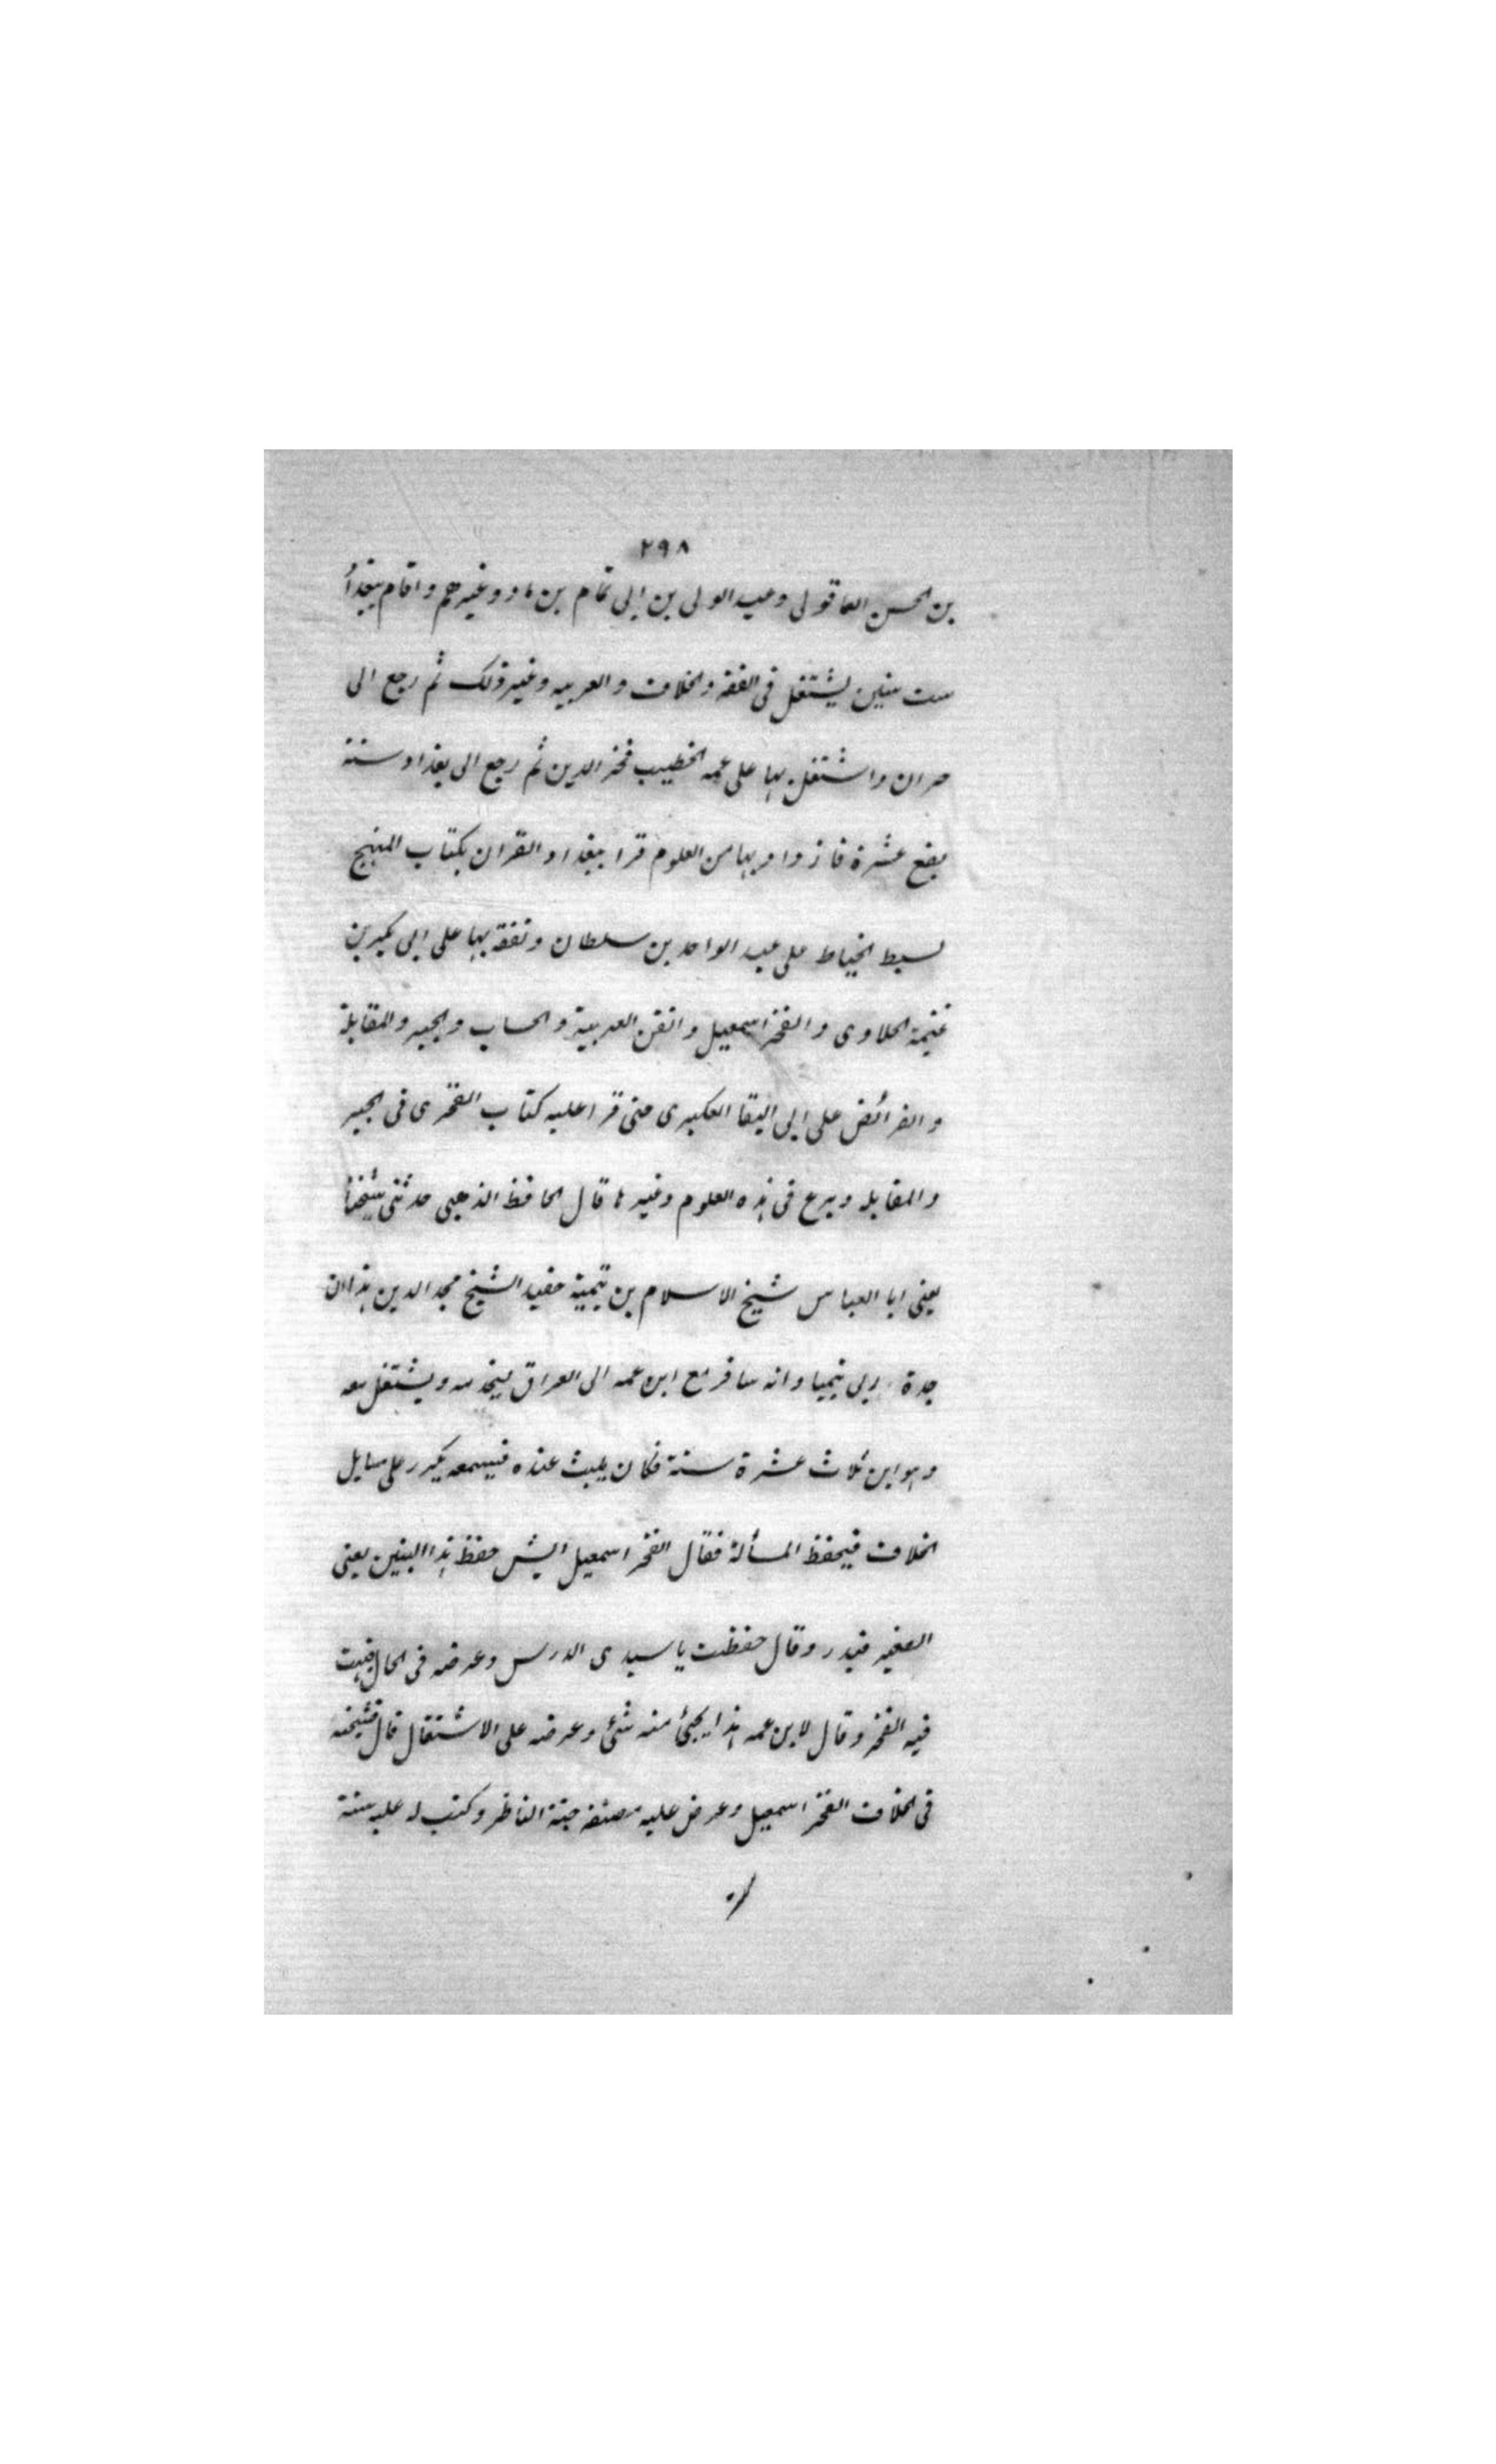 ٢٩٨
بن الحسن العاقولى وعبد الولى بن ابى تمام بن باد وغيرهم واقام ببغداد
ست سنين يشتغل فى الفقه والخلاف والعربيه وغير ذلك ثم رجع الى
حران واشتغل بها على عمه الخطيب فخر الدين ثم رجع الى بغداد سنة
بضع عشرة فازداد بها من العلوم قرا ببغداد القران بكتاب المبهج
لسبط الخياط على عبد الواحد بن سلطان وتفقه بها على ابى بكر بن
غنيمة الحلاوى والفخر اسمعيل واتقن العربية والحساب والجبر والمقابلة
والفرائض على ابى البقا العكبرى حتى قرا عليه كتاب الفخرى فى الجبر
والمقابله وبرع فى هذه العلوم وغيرها قال الحافظ الذهبى حدثنى شيخنا
يعنى ابا العباس شيخ الاسلام بن تيمية حفيد الشيخ مجد الدين هذا ان
جدة ربى يتيما وانه سافر مع ابن عمه الى العراق ليخدمه ويشتغل معه
وهو ابن ثلاث عشرة سنة فكان يبيت عنده فيسمعه يكرر على مسايل
الخلاف فيحفظ المسألة فقال الفخر اسمعيل ايش حفظ هذا التنين يعنى
الصغير فبدر وقال حفظت يا سيدى الدرس وعرضه فى الحال فبهت
فيه الفخر وقال لابن عمه هذا يجئ منه شئ وعرضه على الاشتغال قال فشيخه
فى الخلاف الفخر اسمعيل وعرض عليه مصنفه جنة الناظر وكتب له عليه سنة